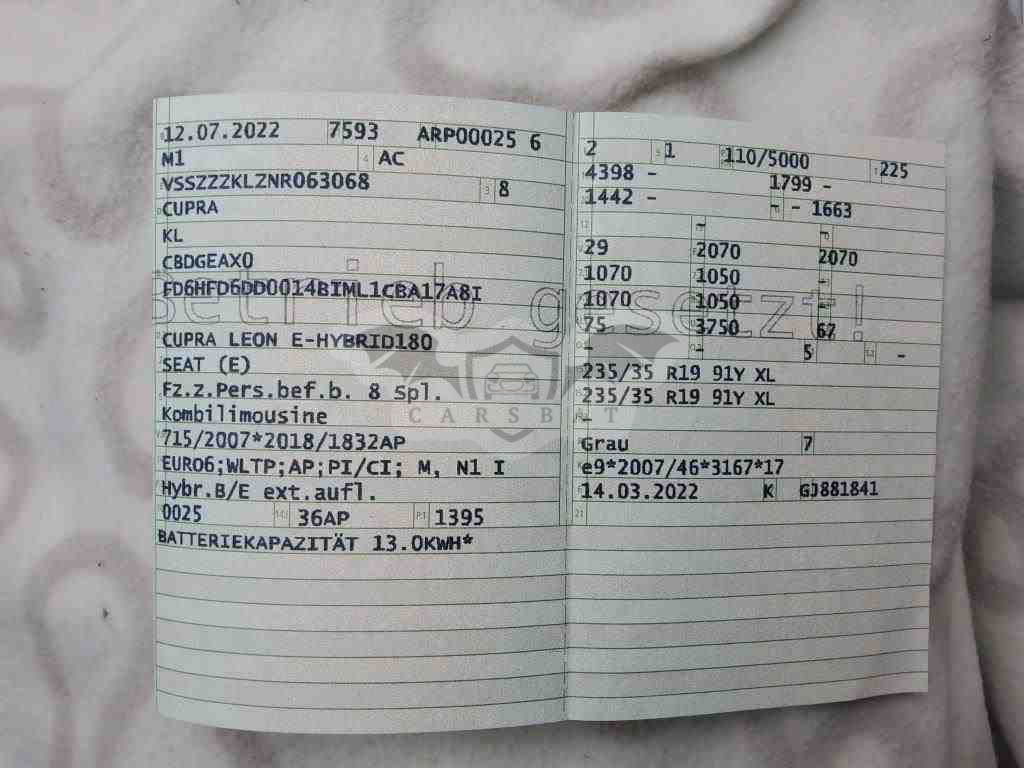 12.07.2022 7593 ARP00025 6
M1 4 AC
VSSZZZKLZNR063068 3 8
CUPRA
KL
CBDGEAX0
FD6HFD6DD0014BIML1CBA17A8I
Betrieb gesetzt!
CUPRA LEON E-HYBRID180
SEAT (E)
Fz.z.Pers.bef.b. 8 Spl.
CARSBAT
Kombilimousine
715/2007*2018/1832AP
EURO6;WLTP;AP;PI/CI; M, N1 I
Hybr.B/E ext.aufl.
0025 36AP P.1 1395
BATTERIEKAPAZITÄT 13.0KWH*
2 1 110/5000 225
4398 - 1799 -
1442 - - - 1663
- -
29 2070 2070
1070 1050 -
1070 1050 -
75 3750 67
- - 5 -
235/35 R19 91Y XL
235/35 R19 91Y XL
-
Grau 7
e9*2007/46*3167*17
14.03.2022 K GJ881841
21